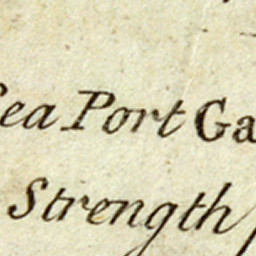 Sea Port Ga
Strength